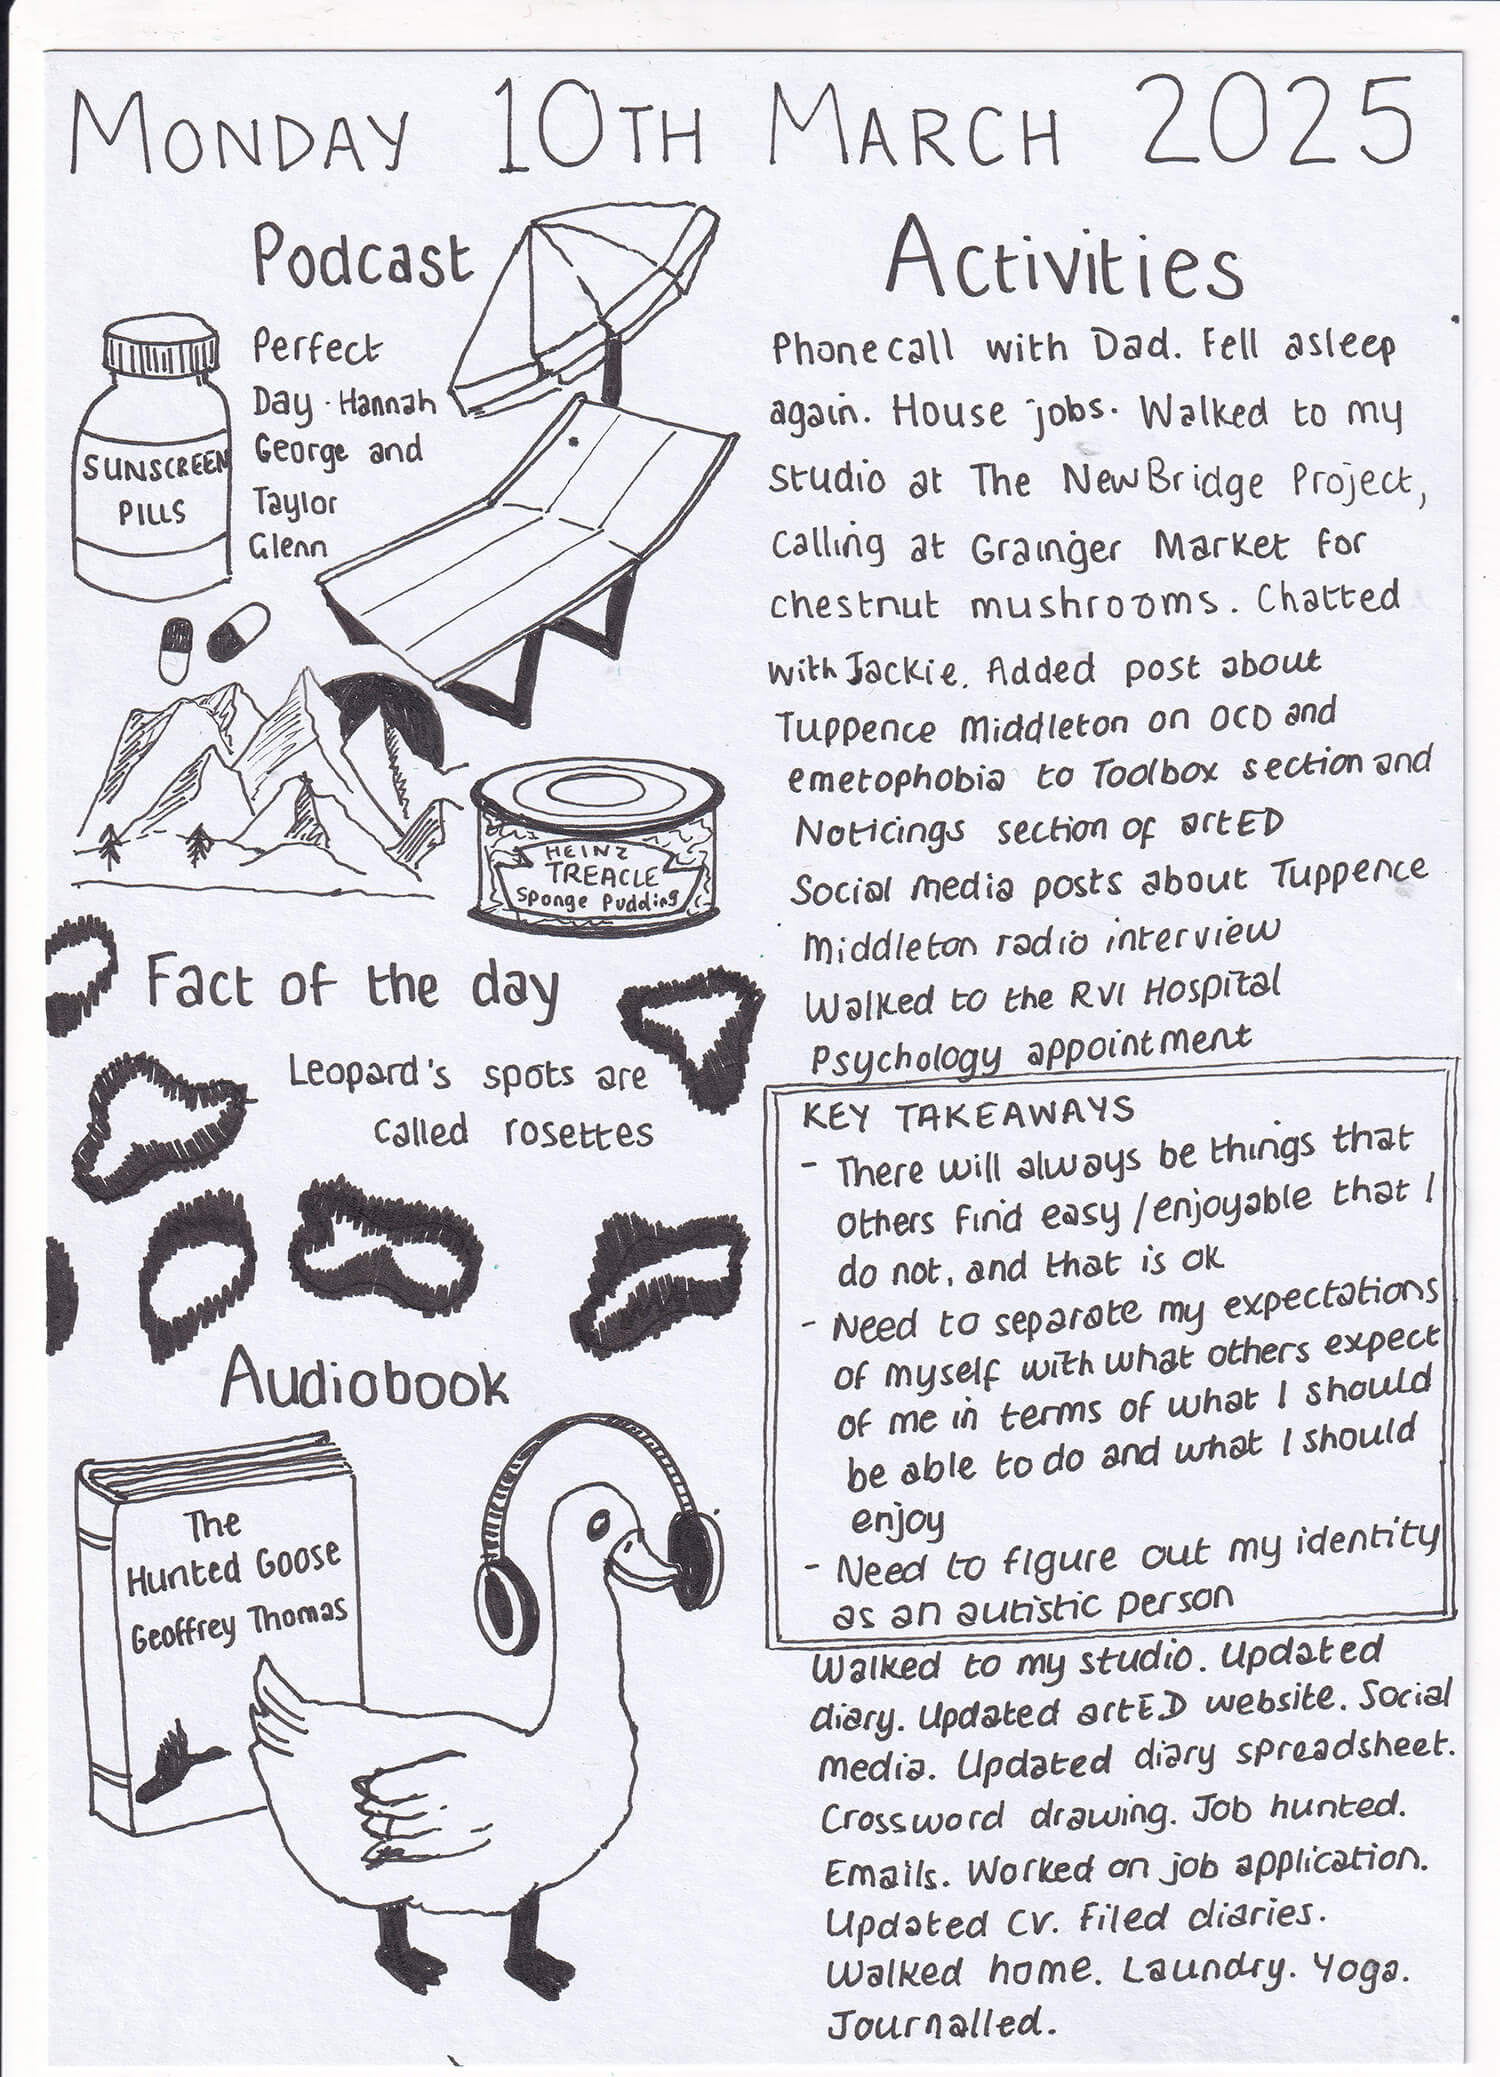 MONDAY 10TH MARCH 2025
Podcast
Perfect
Day · Hannah
George and
Taylor
Glenn
SUNSCREEN
PILLS
HEINZ
TREACLE
Sponge Pudding
Fact of the day
Leopard's spots are
called rosettes
Audiobook
The
Hunted Goose
Geoffrey Thomas
Activities
Phonecall with Dad. Fell asleep
again. House jobs. Walked to my
studio at The NewBridge Project,
calling at Grainger Market for
chestnut mushrooms. Chatted
with Jackie. Added post about
Tuppence Middleton on OCD and
emetophobia to Toolbox section and
Noticings section of artED
Social media posts about Tuppence
Middleton radio interview
Walked to the RVI Hospital
Psychology appointment
KEY TAKEAWAYS
- There will always be things that
others find easy/enjoyable that I
do not, and that is ok
- Need to separate my expectations
of myself with what others expect
of me in terms of what I should
be able to do and what I should
enjoy
- Need to figure out my identity
as an autistic person
Walked to my studio. Updated
diary. Updated artED website. Social
media. Updated diary spreadsheet.
Crossword drawing. Job hunted.
Emails. Worked on job application.
Updated CV. Filed diaries.
Walked home. Laundry. Yoga.
Journalled.